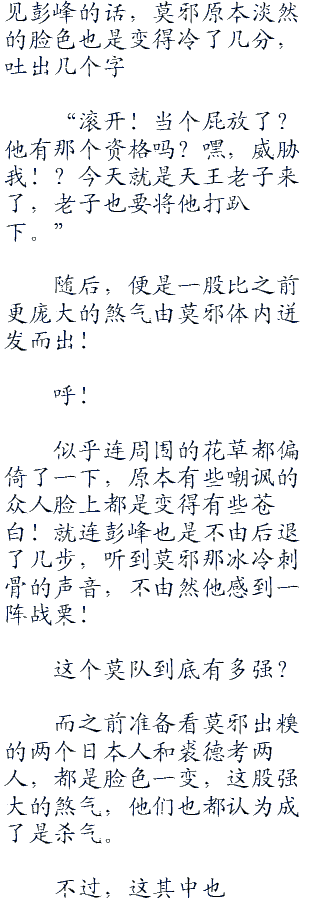 见彭峰的话，莫邪原本淡然
的脸色也是变得冷了几分，
吐出几个字
“滚开！当个屁放了？
他有那个资格吗？嘿，威胁
我！？今天就是天王老子来
了，老子也要将他打趴
下。”
随后，便是一股比之前
更庞大的煞气由莫邪体内迸
发而出！
呼！
似乎连周围的花草都偏
倚了一下，原本有些嘲讽的
众人脸上都是变得有些苍
白！就连彭峰也是不由后退
了几步，听到莫邪那冰冷刺
骨的声音，不由然他感到一
阵战栗！
这个莫队到底有多强？
而之前准备看莫邪出糗
的两个日本人和裘德考两
人，都是脸色一变，这股强
大的煞气，他们也都认为成
了是杀气。
不过，这其中也